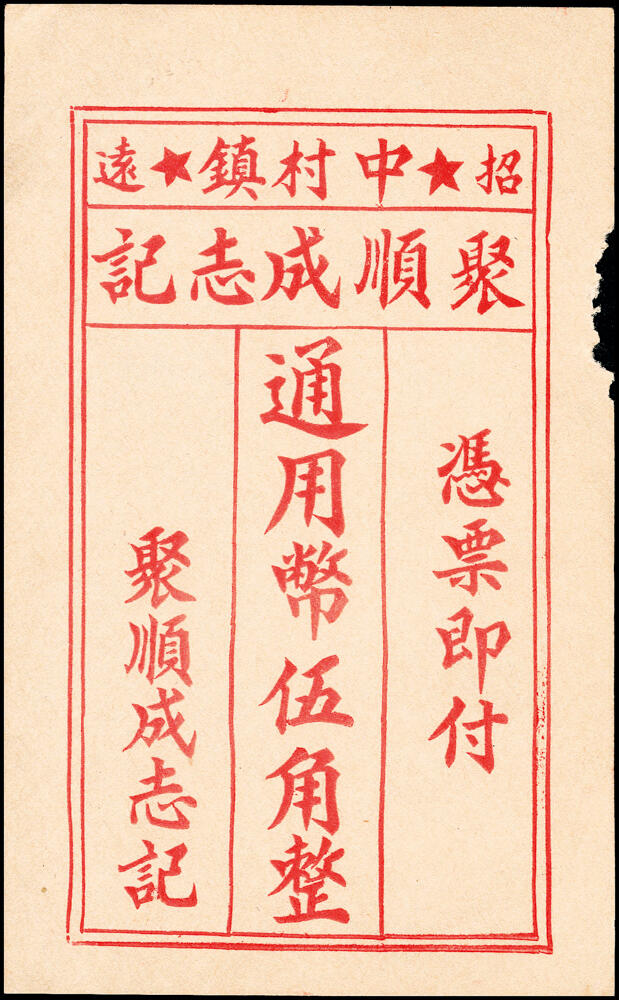 招★中村鎮★遠
聚順成志記
憑票即付
通用幣伍角整
聚順成志記